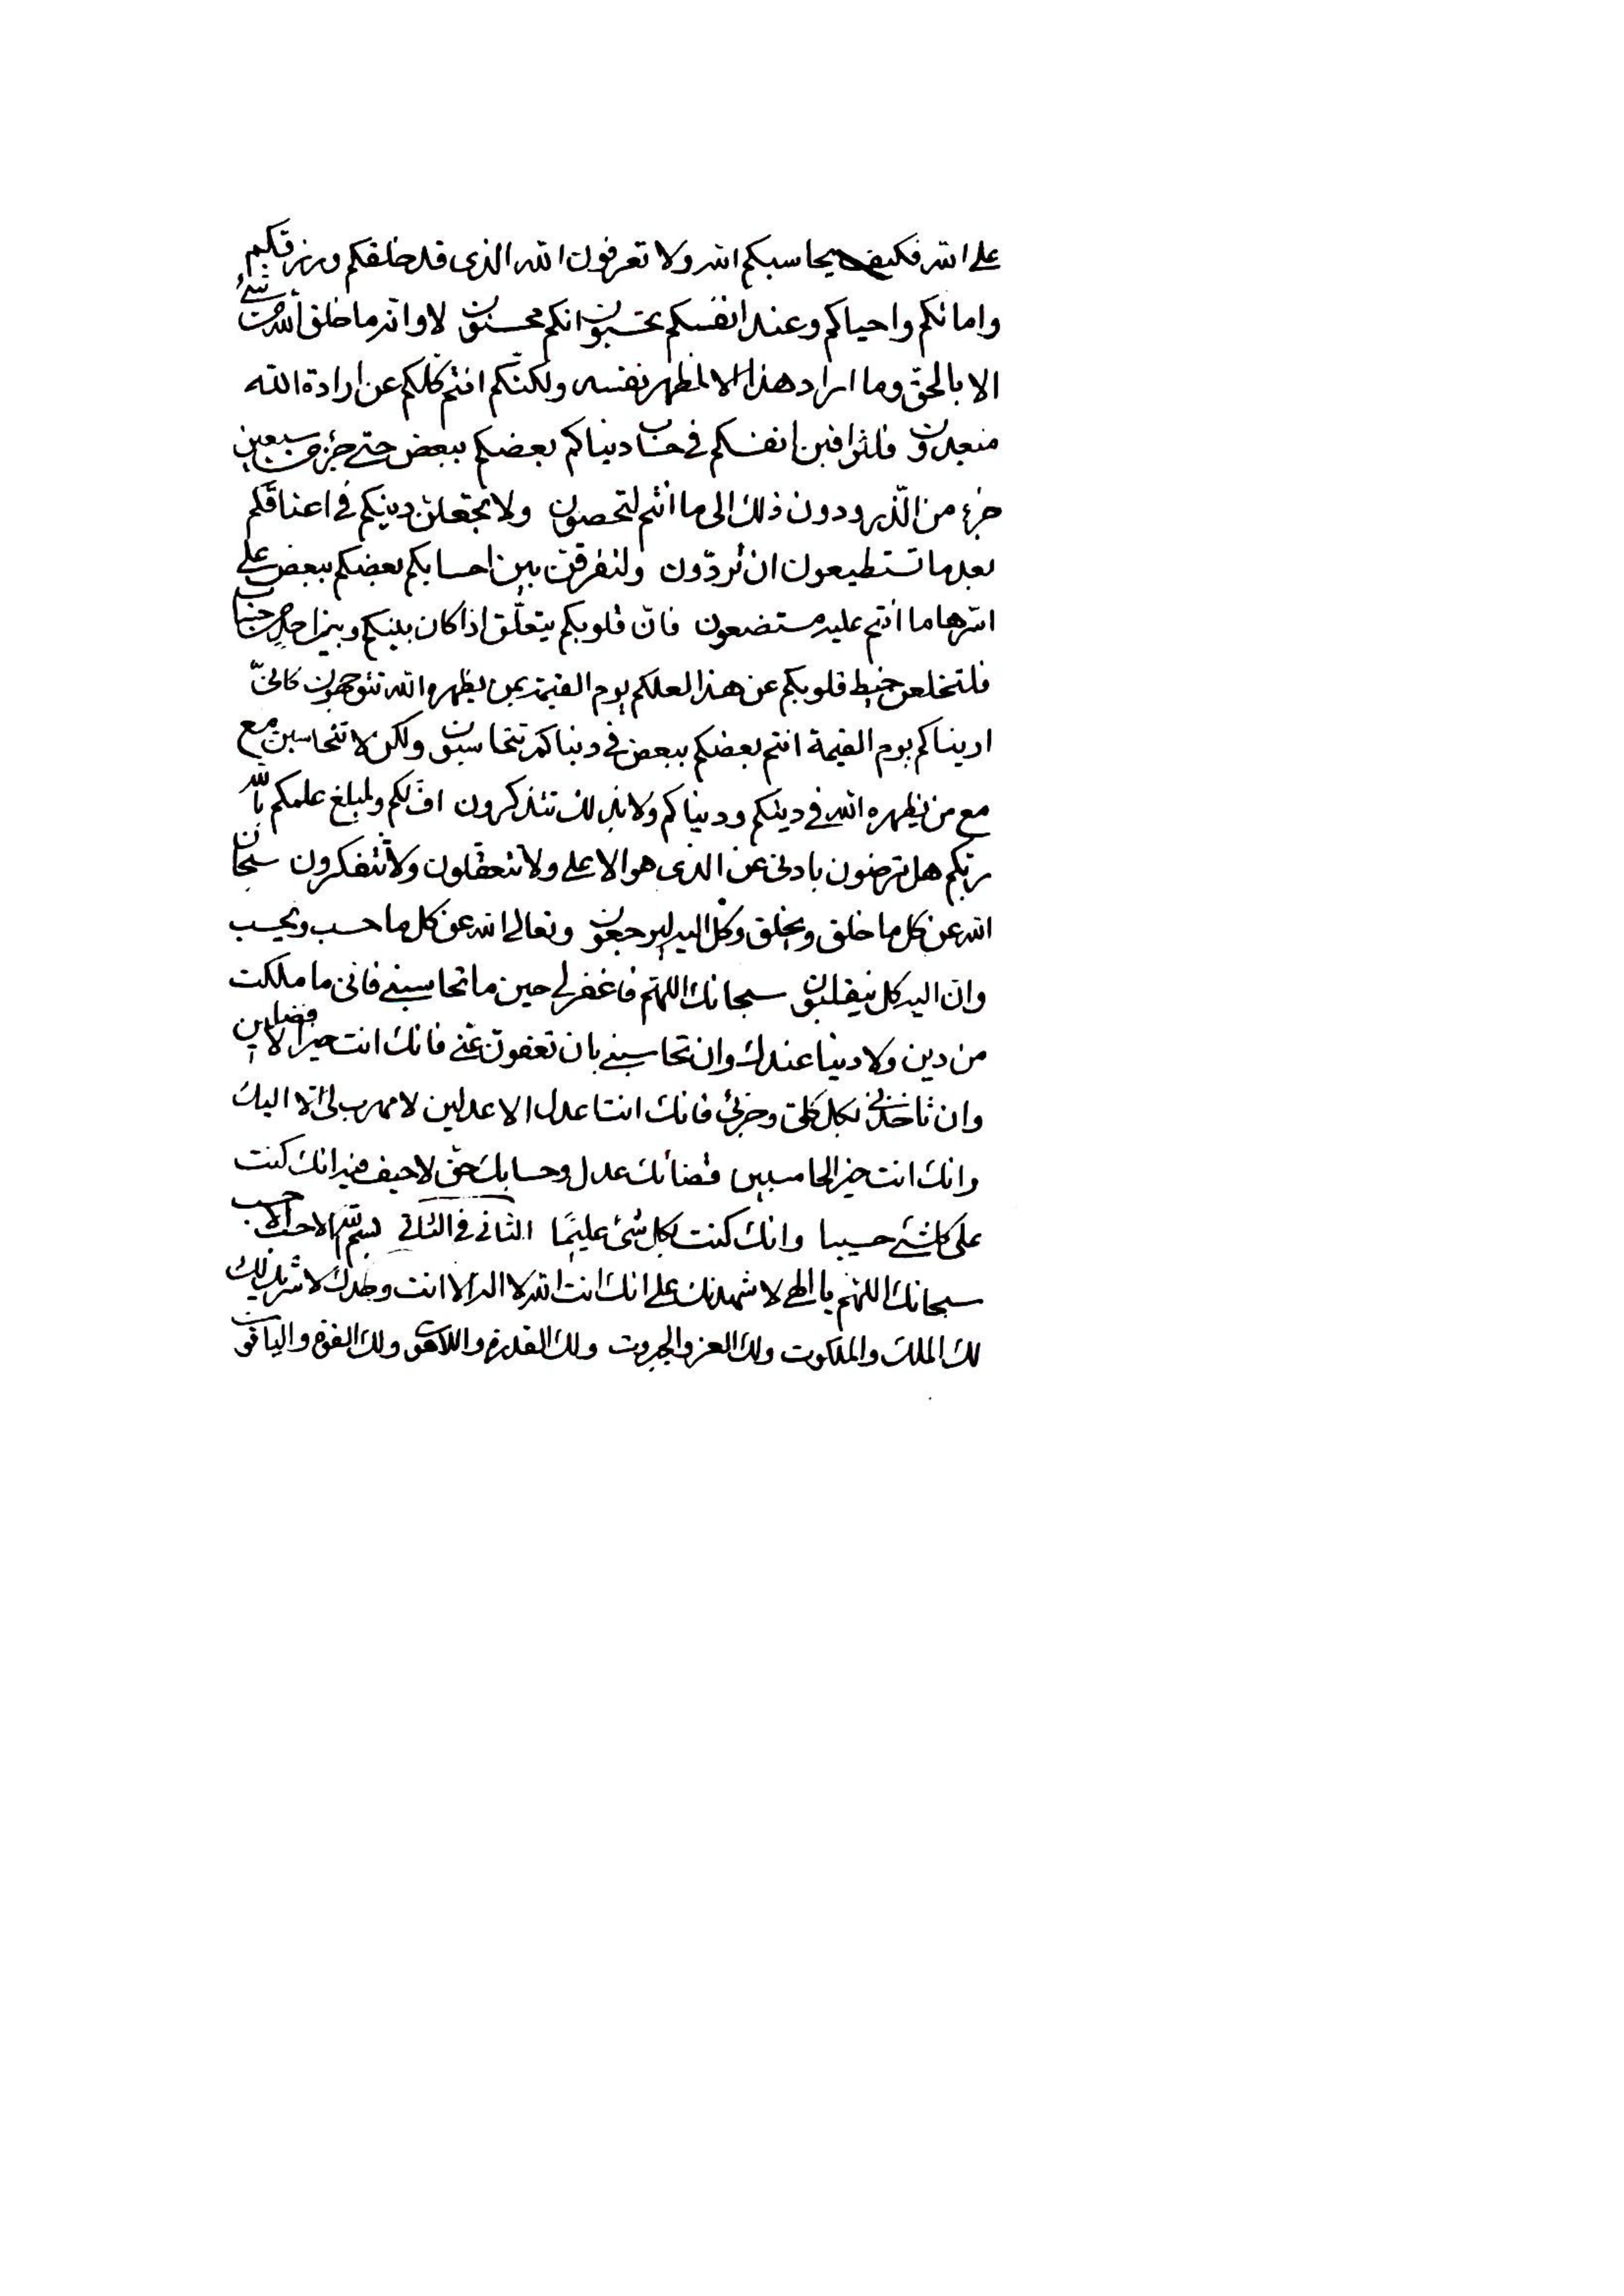 على الله فكيف يحاسبكم الله ولا تعرفون الله الذى قد خلقكم ورزقكم
واماتكم واحياكم وعند انفسكم تحسبون انكم محسنون لا والله ما خلق الله من شئ
الا بالحق وما اراد هذا الا لمظهر نفسه ولكنكم انتم كلكم عن ارادة الله
مبعدون فلتراقبن انفسكم فى حساب دنياكم بعضكم ببعض حتى جزء من سبعين
جزء من الذر ودون ذلك الى ما انتم لتحصون ولا تجعلن دينكم فى اعناقكم
بعد ما تستطيعون ان تردّون ولتفرقن بين احسابكم بعضكم ببعض على
اسرها ما انتم عليه مستضعون فانّ قلوبكم يتعلّق اذا كان بينكم وبين احد من حساب
فلتخلعن خيط قلوبكم عن هذا لعلكم يوم القيمة بمن يظهره الله تتوجهون كانّى
اريناكم يوم القيمة انتم بعضكم ببعض فى دنياكم تتحاسبون ولكن لا تتحاسبن مع
مع من يظهره الله فى دينكم ودنياكم ولا بذلك تتذكرون افّ لكم ولمبلغ علمكم بالله
ربكم هل ترضون بادنى عن الذى هو الاعلى ولا تتعقلون ولا تتفكرون سبحان
الله عن كل ما خلق ويخلق وكل اليه ليرجعون وتعالى الله عن كل ما حسب ويحسب
وان اليه كل ينقلبون سبحانك اللهم فاغفر لى حين ما تحاسبنى فانى ما ملكت
من دين ولا دنيا عندك وان تحاسبنى بان تعفون عنّى فانك انت خير الافضلين
وان تاخذنى بكل كلّى وجزئى فانك انت اعدل الاعدلين لا مهرب لى الا اليك
وانك انت خير الحاسبين قضائك عدل وحسابك حق لا حيف فيه انك كنت
على كل شئ حسيبا وانك كنت بكل شئ عليمًا الثانى فى الثانى بسم الله الاحسب الاحسب
سبحانك اللهم يا الهى لاشهدنك على انك انت الله لا اله الا انت وحدك لا شريك لك
لك الملك والملكوت ولك العز والجبروت ولك القدرة واللاهوت ولك القوة والياقوت